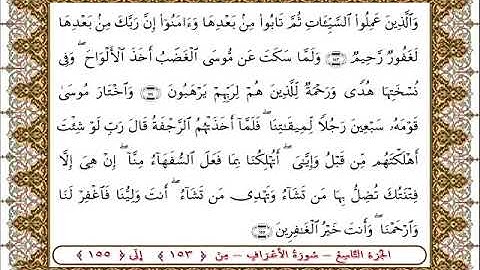 وَالَّذِينَ عَمِلُوا۟ السَّيِّـَٔاتِ ثُمَّ تَابُوا۟ مِنۢ بَعْدِهَا وَءَامَنُوٓا۟ إِنَّ رَبَّكَ مِنۢ بَعْدِهَا
لَغَفُورٌ رَّحِيمٌ ﴿١٥٣﴾ وَلَمَّا سَكَتَ عَن مُّوسَى ٱلْغَضَبُ أَخَذَ ٱلْأَلْوَاحَ ۖ وَفِى
نُسْخَتِهَا هُدًى وَرَحْمَةٌ لِّلَّذِينَ هُمْ لِرَبِّهِمْ يَرْهَبُونَ ﴿١٥٤﴾ وَٱخْتَارَ مُوسَىٰ
قَوْمَهُۥ سَبْعِينَ رَجُلًا لِّمِيقَـٰتِنَا ۖ فَلَمَّآ أَخَذَتْهُمُ ٱلرَّجْفَةُ قَالَ رَبِّ لَوْ شِئْتَ
أَهْلَكْتَهُم مِّن قَبْلُ وَإِيَّـٰىَ ۖ أَتُهْلِكُنَا بِمَا فَعَلَ ٱلسُّفَهَآءُ مِنَّآ ۖ إِنْ هِىَ إِلَّا
فِتْنَتُكَ تُضِلُّ بِهَا مَن تَشَآءُ وَتَهْدِى مَن تَشَآءُ ۖ أَنتَ وَلِيُّنَا فَٱغْفِرْ لَنَا
وَٱرْحَمْنَا ۖ وَأَنتَ خَيْرُ ٱلْغَـٰفِرِينَ ﴿١٥٥﴾
الجزء التاسع – سورة الأعراف – من ﴿ ١٥٣ ﴾ إلى ﴿ ١٥٥ ﴾